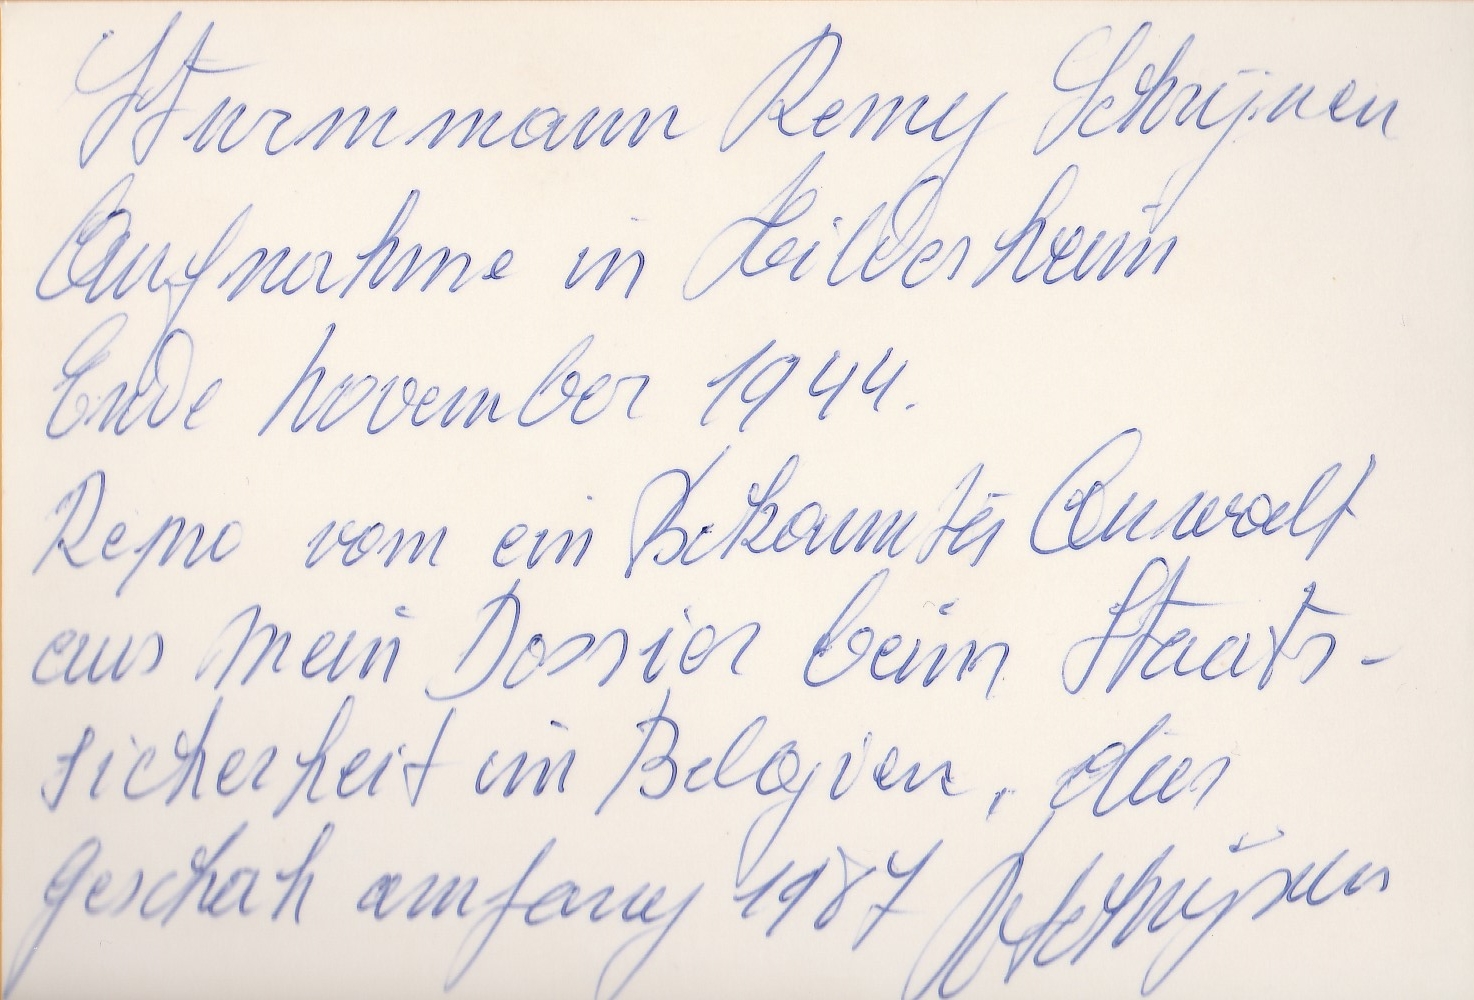 Sturmmann Remy Schrijnen
Aufnahme in Hildesheim
Ende November 1944.
Repro vom ein Bekannter Anwalt
aus mein Dossier beim Staats-
sicherheit im Belgien, dies
geschah anfang 1987 R Schrijnen